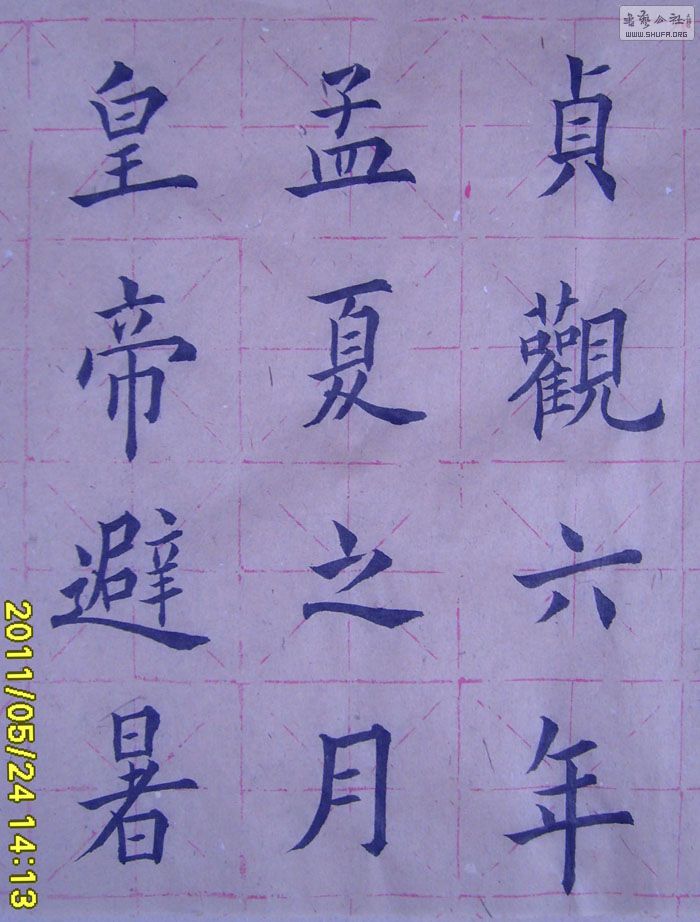 貞觀六年
孟夏之月
皇帝避暑
书艺公社
WWW.SHUFA.ORG
2011/05/24 14:13